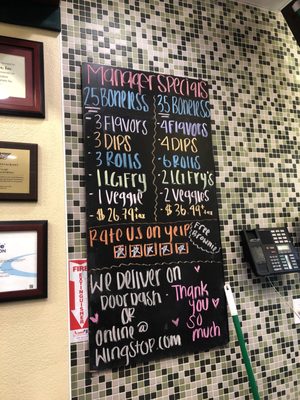 Manager Specials
25 Boneless
3 Flavors
3 Dips
3 Rolls
1 LG Fry
1 Veggie
- $26.79 + tax
35 Boneless
4 Flavors
4 Dips
6 Rolls
2 LG Fry's
2 Veggies
- $36.49 + tax
Rate us on yelp
Free
We deliver on
DoorDash.
or
online @
Wingstop.com
Thank
you
so
much
FIRE
EXTINGUISHER